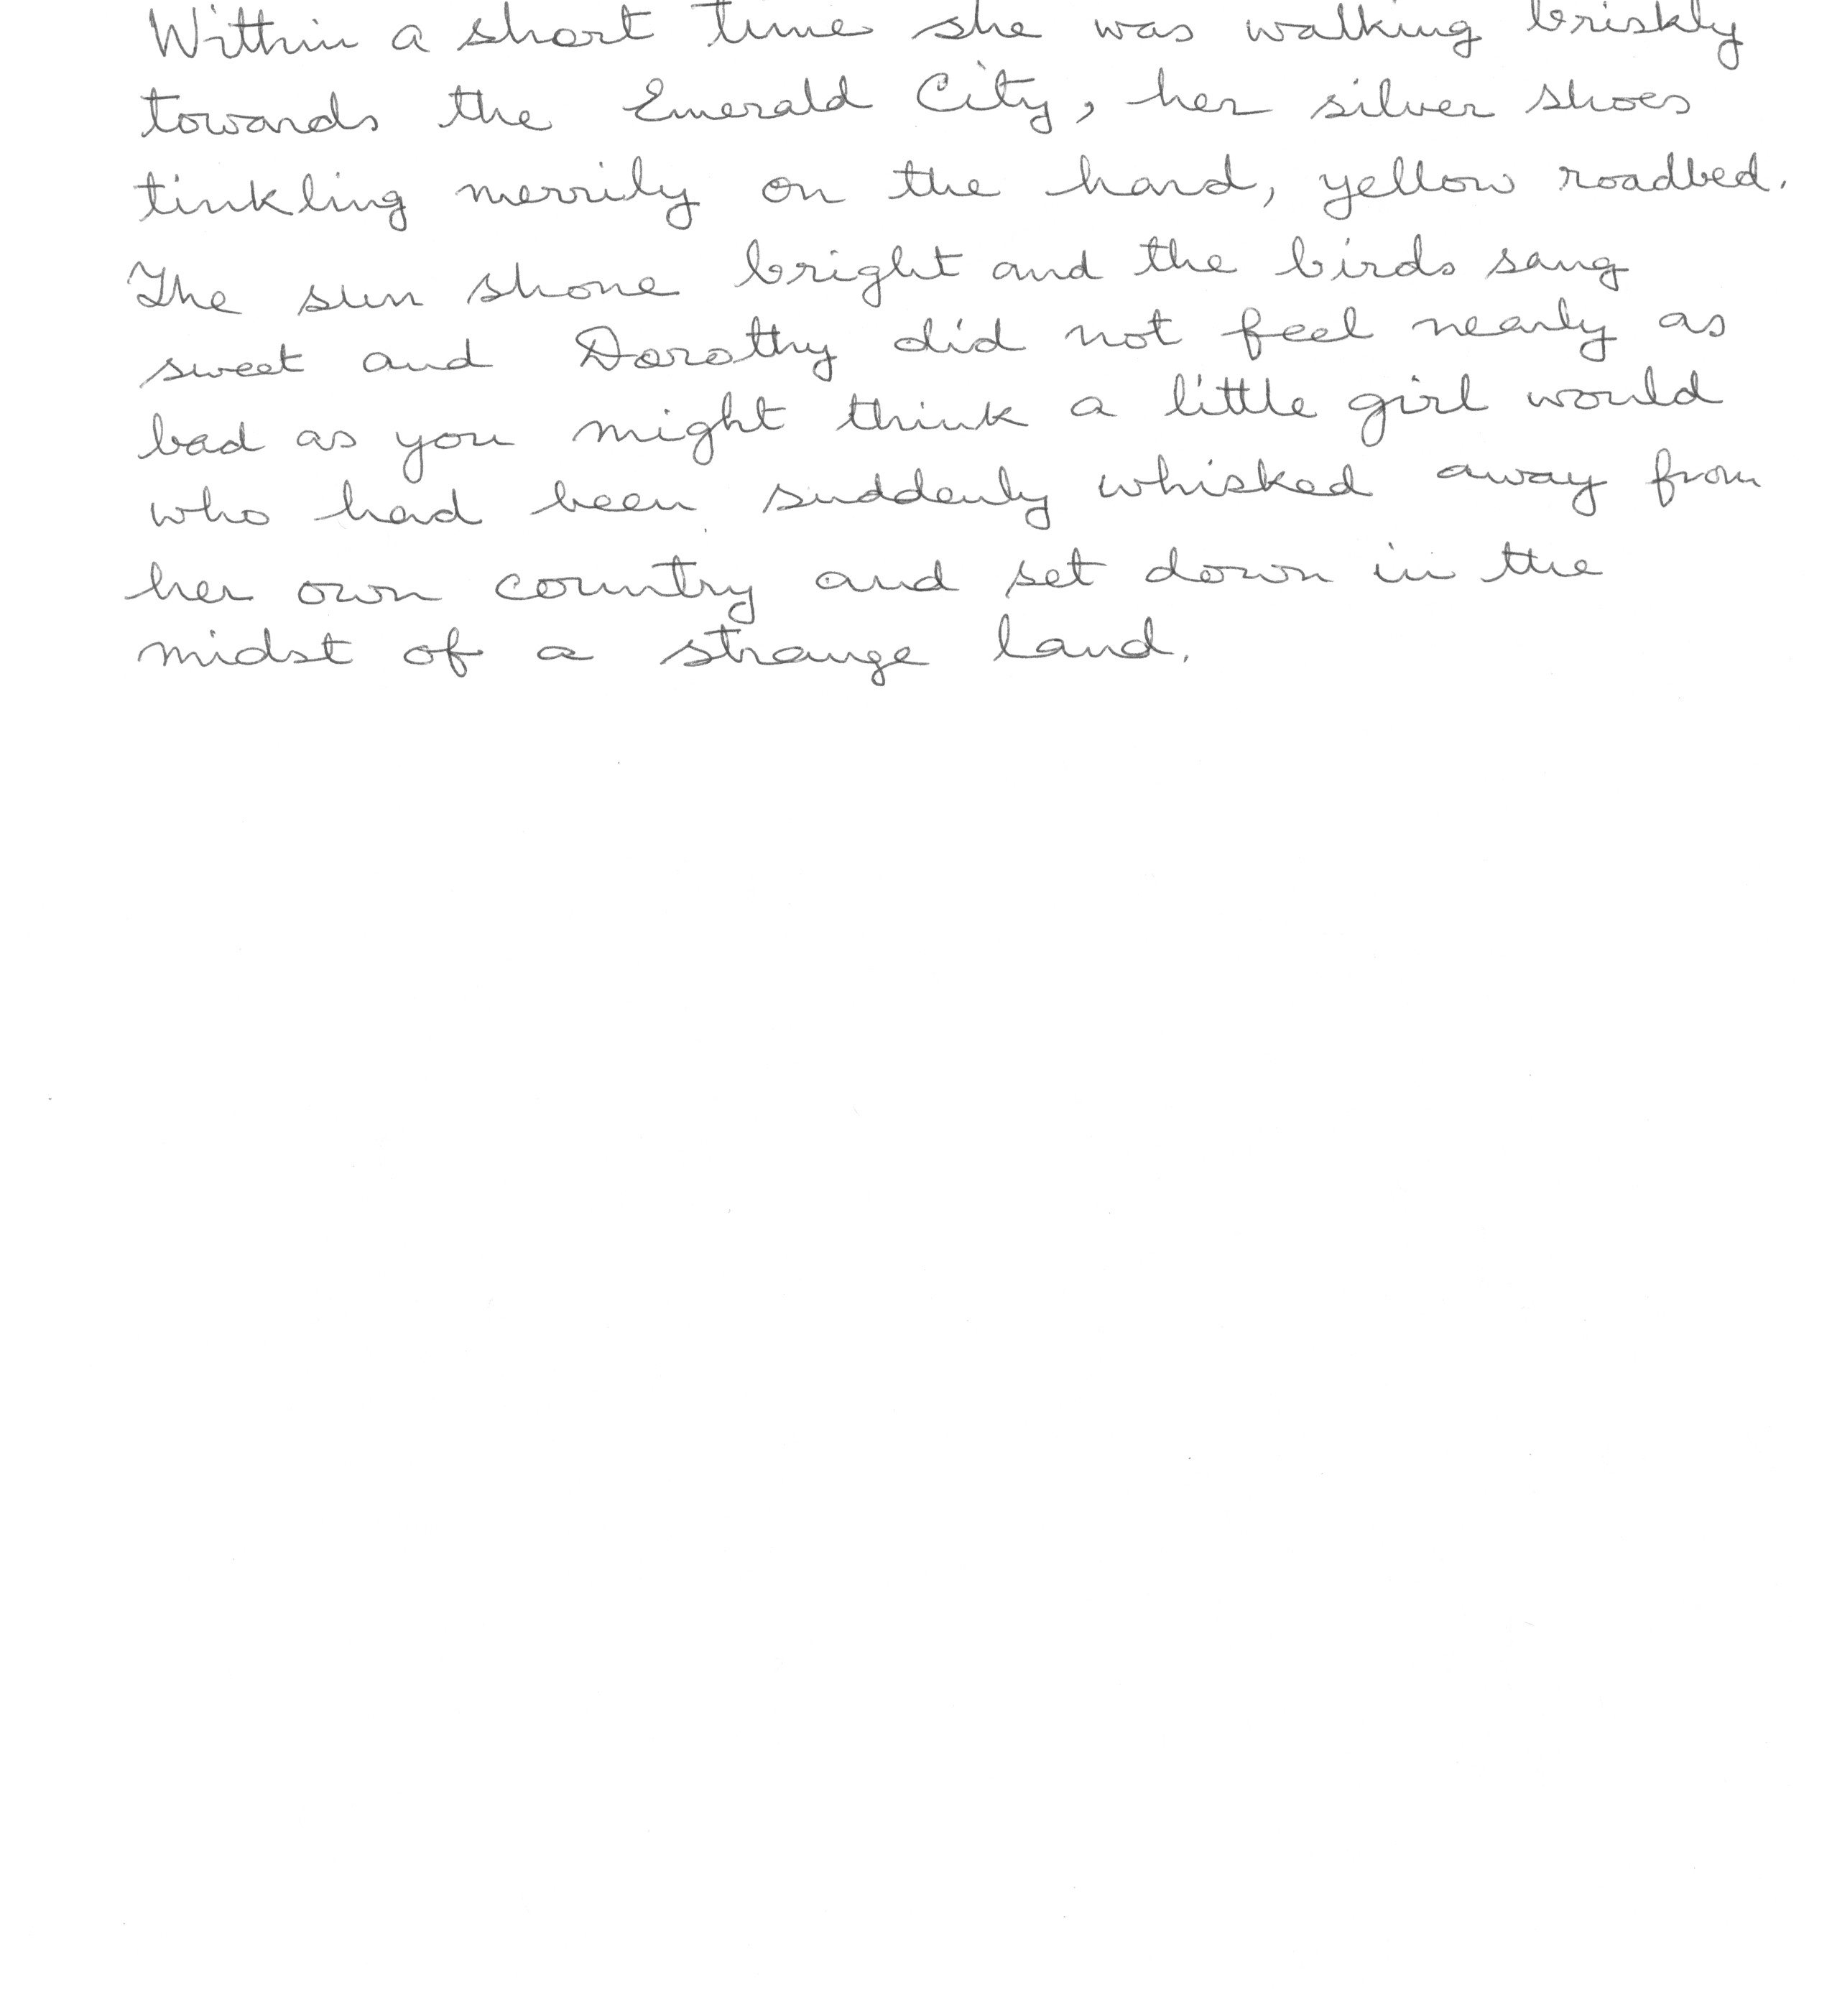 Within a short time she was walking briskly
towards the Emerald City, her silver shoes
tinkling merrily on the hard, yellow roadbed.
The sun shone bright and the birds sang
sweet and Dorothy did not feel nearly as
bad as you might think a little girl would
who had been suddenly whisked away from
her own country and set down in the
midst of a strange land.